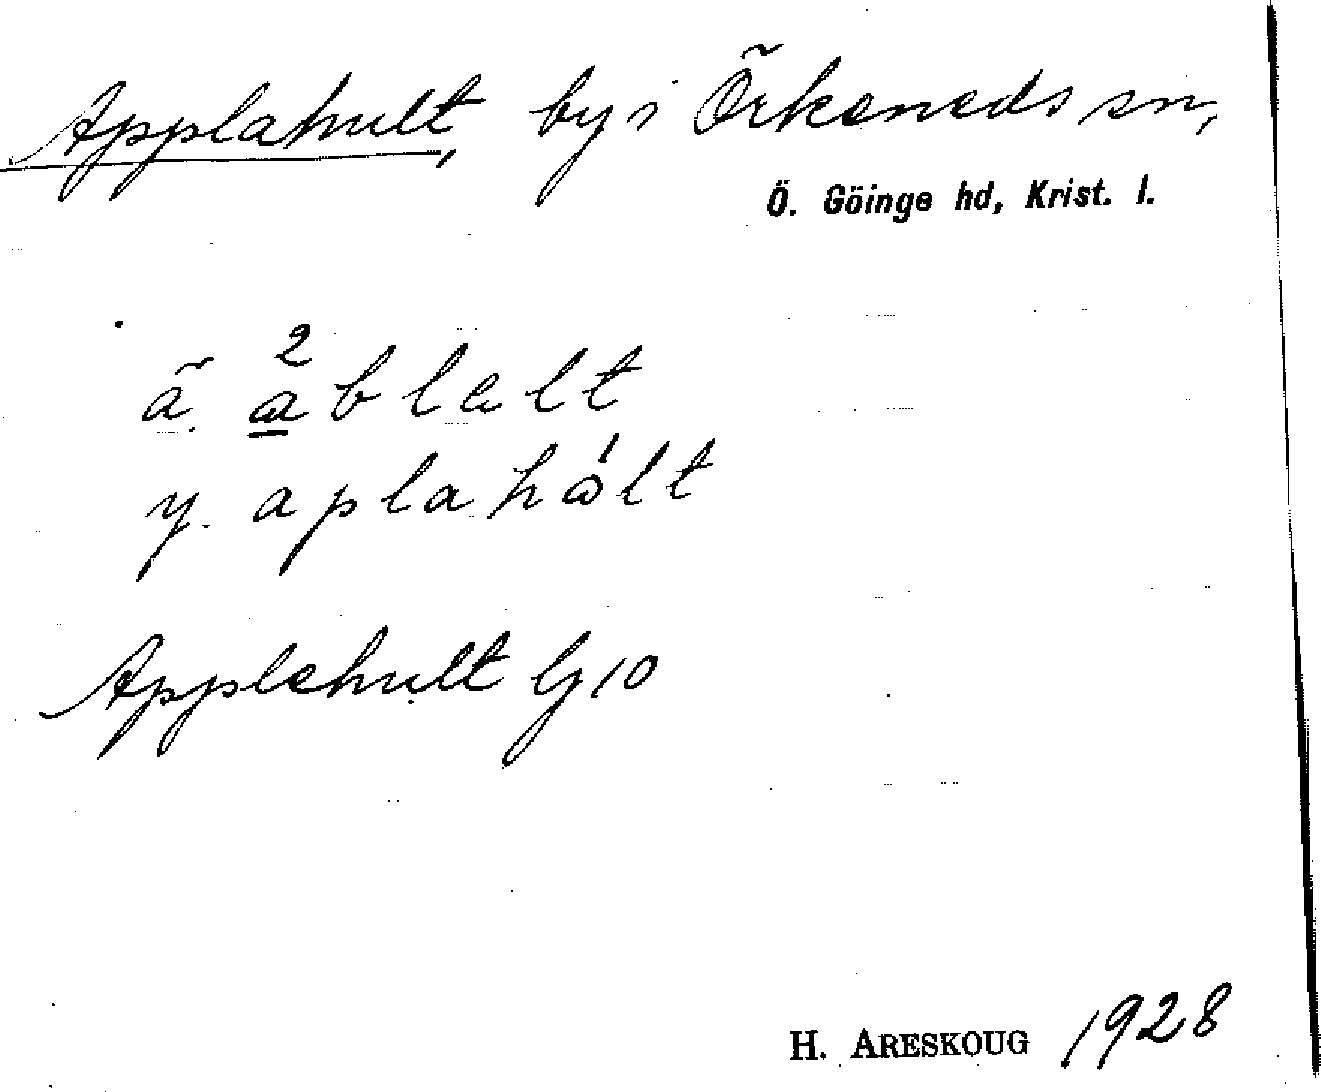 Applahult, by i Örkeneds sn,
Ö. Göinge hd, Krist. l.
ä. a²blalt
y. aplahált
Applehult Gj 10
H. ARESKOUG 1928